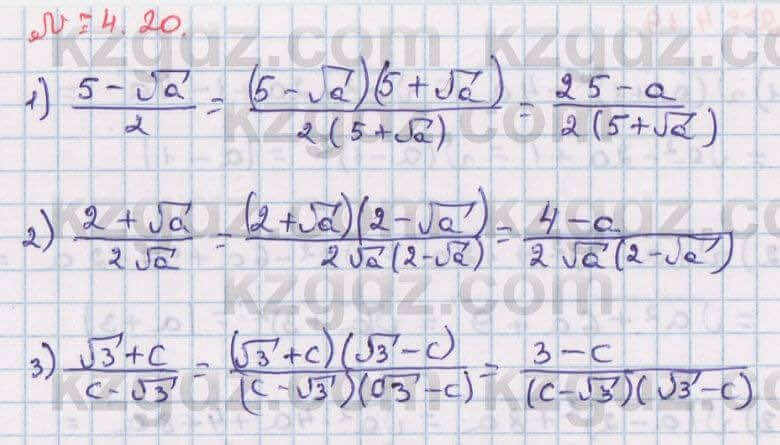 № 4.20.
1) (5 - √a)/2 = ((5 - √a)(5 + √a))/(2(5 + √a)) = (25 - a)/(2(5 + √a))
2) (2 + √a)/(2√a) = ((2 + √a)(2 - √a))/(2√a(2 - √a)) = (4 - a)/(2√a(2 - √a))
3) (√3 + c)/(c - √3) = ((√3 + c)(√3 - c))/((c - √3)(√3 - c)) = (3 - c)/((c - √3)(√3 - c))
kzgdz.com
kzgdz.com
kzgdz.com